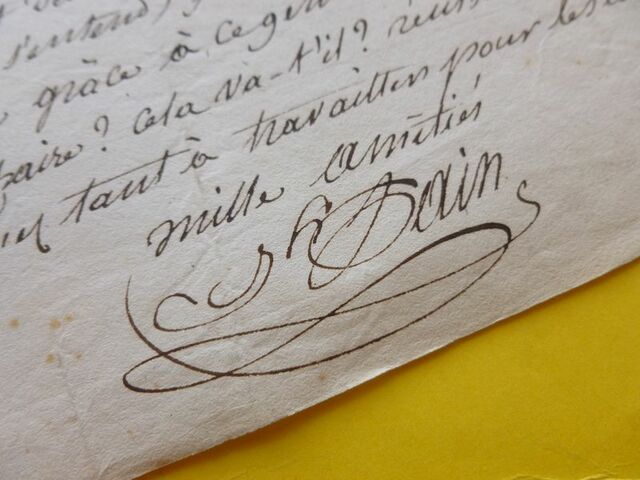 s'entend,
grâce à ce gen
faire? cela va-t'il? réuss
tant à travailler pour les
mille amitiés
Ch Dain